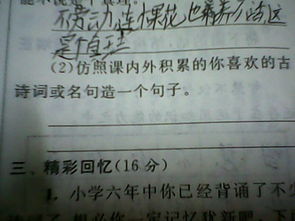 不劳动,连棵花也养不活,这
是真理
(2)仿照课内外积累的你喜欢的古
诗词或名句造一个句子。
三、精彩回忆(16分)
1. 小学六年中你已经背诵了不少